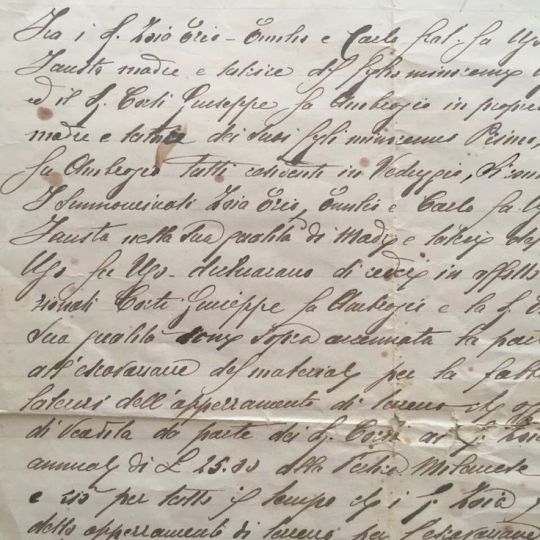 Fra i S. Zoia Erio - Emilio e Carlo frat. fu Ugo
Fausta madre e tutrice dei figli minorenni
ed il S. Corti Giuseppe fu Ambrogio in proprio
madre e tutrice dei suoi figli minorenni Primo,
fu Ambrogio tutti abitanti in Vedeggio, si con
I summenzionati Zoia Erio, Emilio e Carlo fu U
Fausta nella sua qualità di Madre e tutrice
Ugo fu Ugo - dichiarano di cedere in affitto
zionati Corti Giuseppe fu Ambrogio e la S.
sua qualità come sopra accennata la parte
all'escavazione del materiale per la fabb
laterizi dell'appezzamento di terreno
di vendita da parte dei S. Corti ai S. Zoia
annuale di £ 25.30 alla Pertica Milanese
e ciò per tutto il tempo che i S. Zoia
detto appezzamento di terreno per l'escavazione